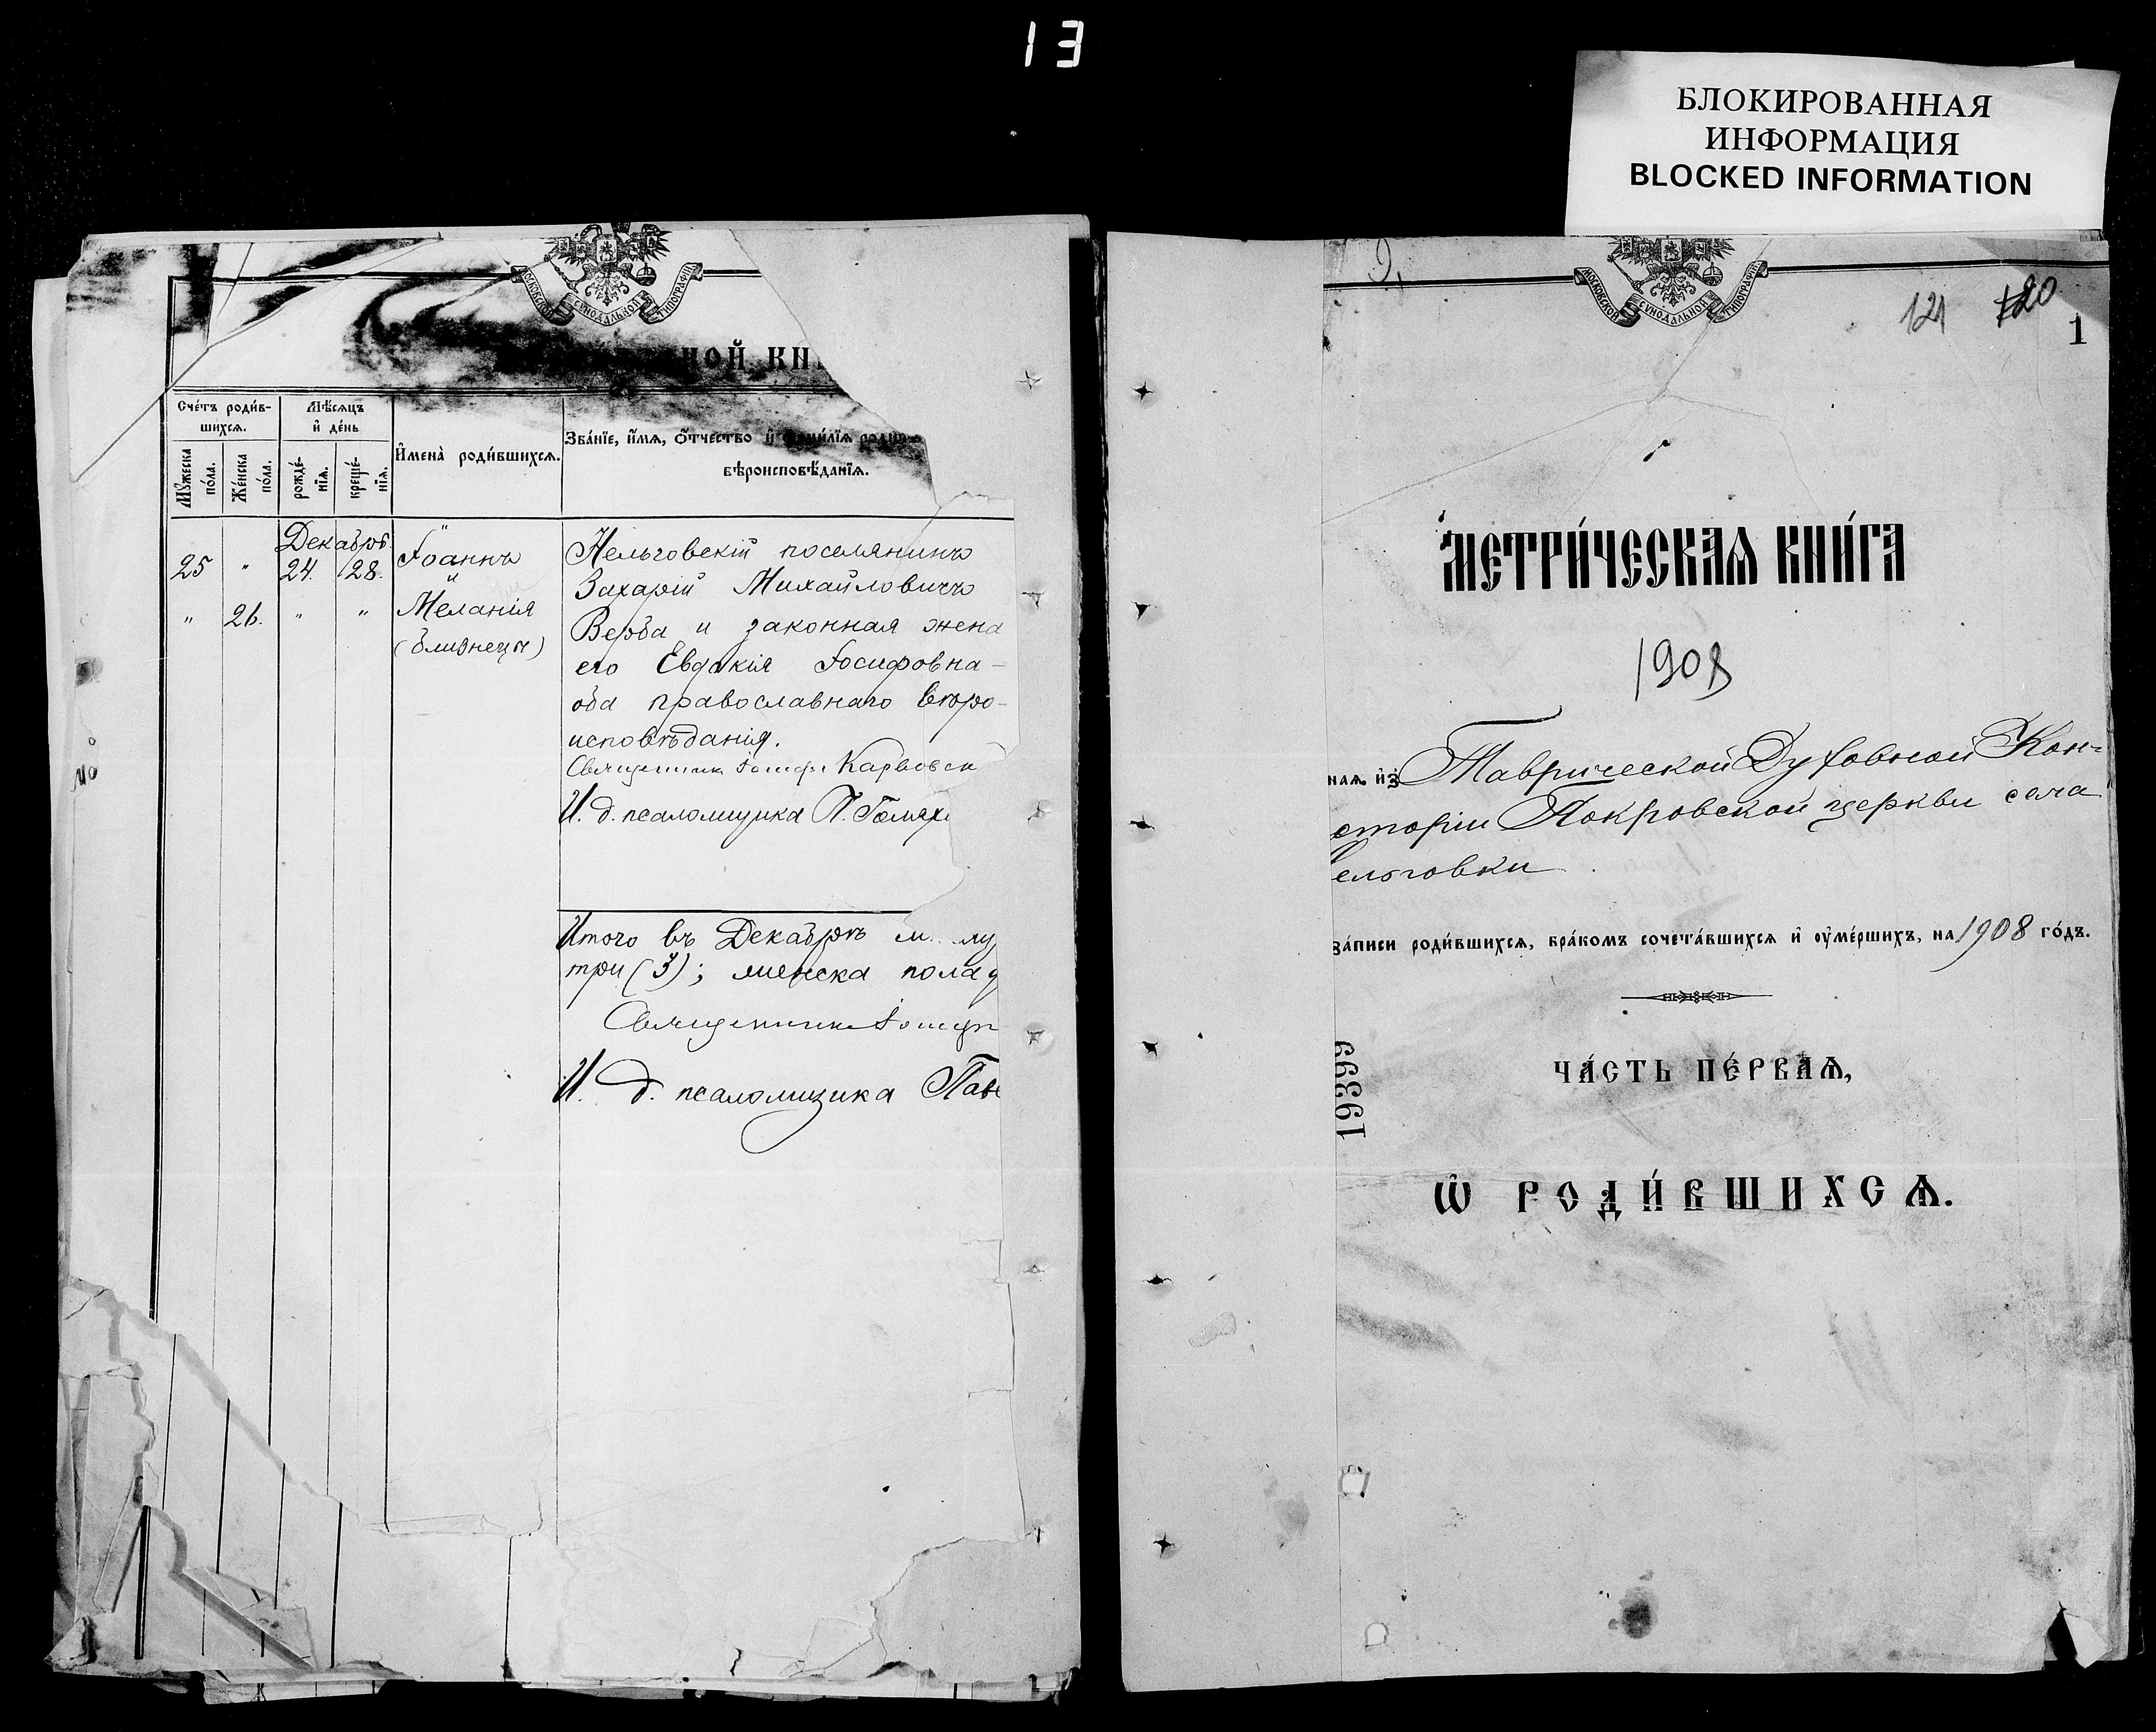 13
БЛОКИРОВАННАЯ
ИНФОРМАЦИЯ
BLOCKED INFORMATION
МОСКОВСКОЙ СѴНОДАЛЬНОЙ ТИПОГРАФІИ
НОЙ КНИ
Сче́тъ роди́в-
шихсѧ.
Мѣ́сѧцъ
и҆ де́нь
Мꙋ́жеска
по́ла.
Же́нска
по́ла.
рожде́-
нїѧ.
креще́-
нїѧ.
И҆мена̀ роди́вшихсѧ.
Зва́нїе, и҆́мѧ, ѻ҆́тчество и҆ фами́лїѧ роди
вѣроисповѣ́данїѧ.
Декабрь
25 " 24. 28. Іоаннъ
" 26. " " Меланія
(близнецы)
Нельговскій поселянинъ
Захарій Михайловичъ
Верба и законная жена
его Евдокія Іосифовна –
оба православнаго вѣро-
исповѣданія.
Священникъ Іосифъ Карвовск
И. д. псаломщика П. Голях
Итого въ Декабрѣ м. му
три (3); женска пола д
Священникъ Іосиф
И. д. псаломщика Пав
МОСКОВСКОЙ СѴНОДАЛЬНОЙ ТИПОГРАФІИ
121 120
1
МЕТРИ́ЧЕСКАѦ КНИ́ГА
1908
наѧ и҆з̾ Таврической Духовной Кон-
сторіи Покровской церкви села
ельговки
за́писи роди́вшихсѧ, бра́комъ сочета́вшихсѧ и҆ ᲂу҆ме́ршихъ, на 1908 го́дъ.
ЧА́СТЬ ПЕ́РВАѦ,
19399
Ѡ҆ РОДИ́ВШИХСѦ.